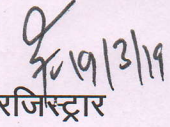 19/3/19
रजिस्ट्रार